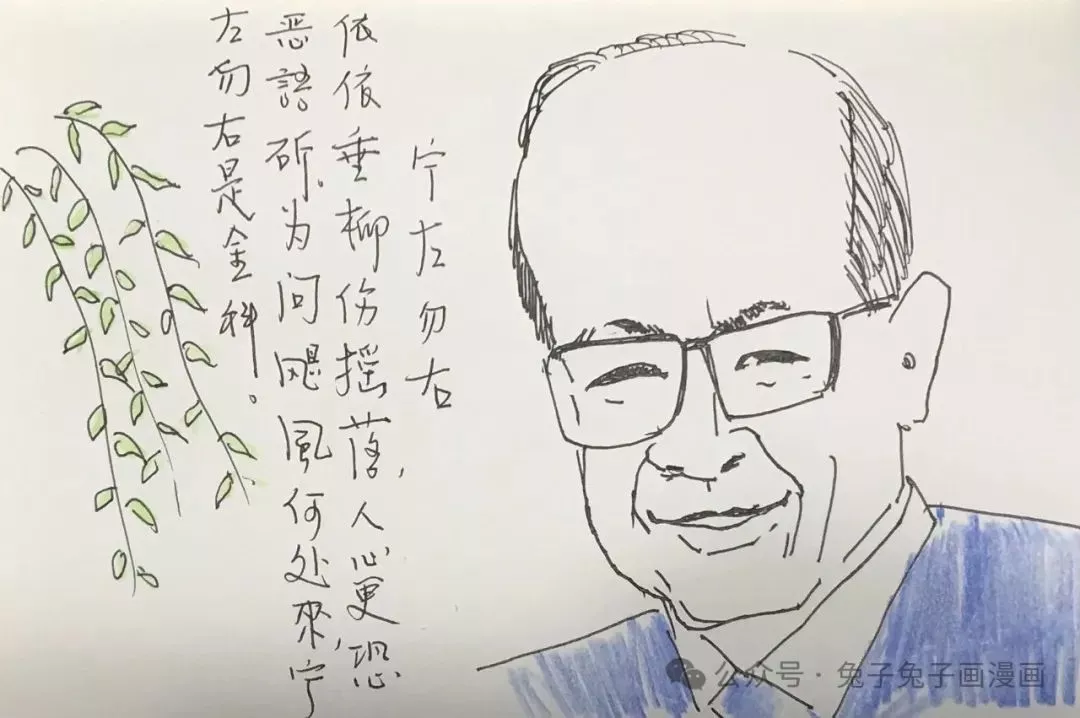 宁左勿右
依依垂柳伤摇落,人心更恐
恶語斫.为问飓風何处來,宁
左勿右是金科。
公众号 · 兔子兔子画漫画